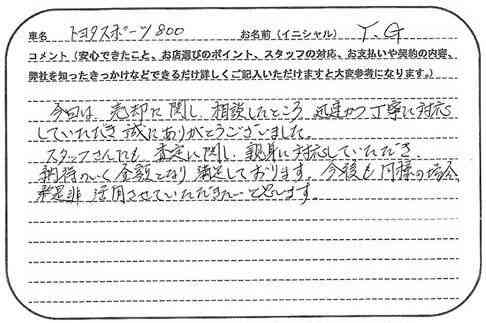 車名 トヨタスポーツ800 お名前（イニシャル） Y.G
コメント（安心できたこと、お店選びのポイント、スタッフの対応、お支払いや契約の内容、
弊社を知ったきっかけなどできるだけ詳しくご記入いただけますと大変参考になります。）
今回は、売却に関し、相談したところ、迅速かつ丁寧に対応
していただき誠にありがとうございました。
スタッフさんも、査定に関し、親身に対応していただき
納得のいく金額となり満足しております。今後も同様の場合、
是非活用させていただきたいと思います。